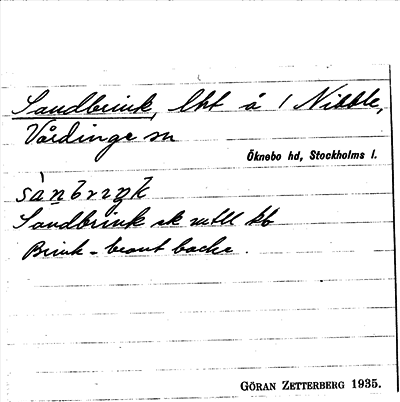 Sandbrink, lht å 1 Nibble,
Vårdinge sn
Öknebo hd, Stockholms l.
Sandbrink ek
Brink - brant backe.
GÖRAN ZETTERBERG 1935.